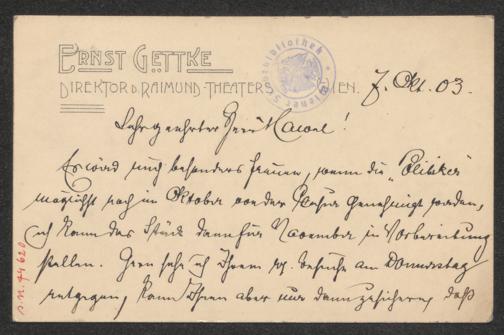 ERNST GETTKE
DIREKTOR D. RAIMUND-THEATERS WIEN.
Wiener Stadtbibliothek
7. Okt. 03.
Sehr geehrter Herr Hawel!
Es wird mich besonders freuen, wenn die „Politiker"
möglichst noch im Oktober von der Zensur genehmigt werden,
ich kann das Stück dann für November in Vorbereitung
stellen. Gern sehe ich Ihrem Besuche am Donnerstag
entgegen, kann Ihnen aber nur dann zusichern, daß